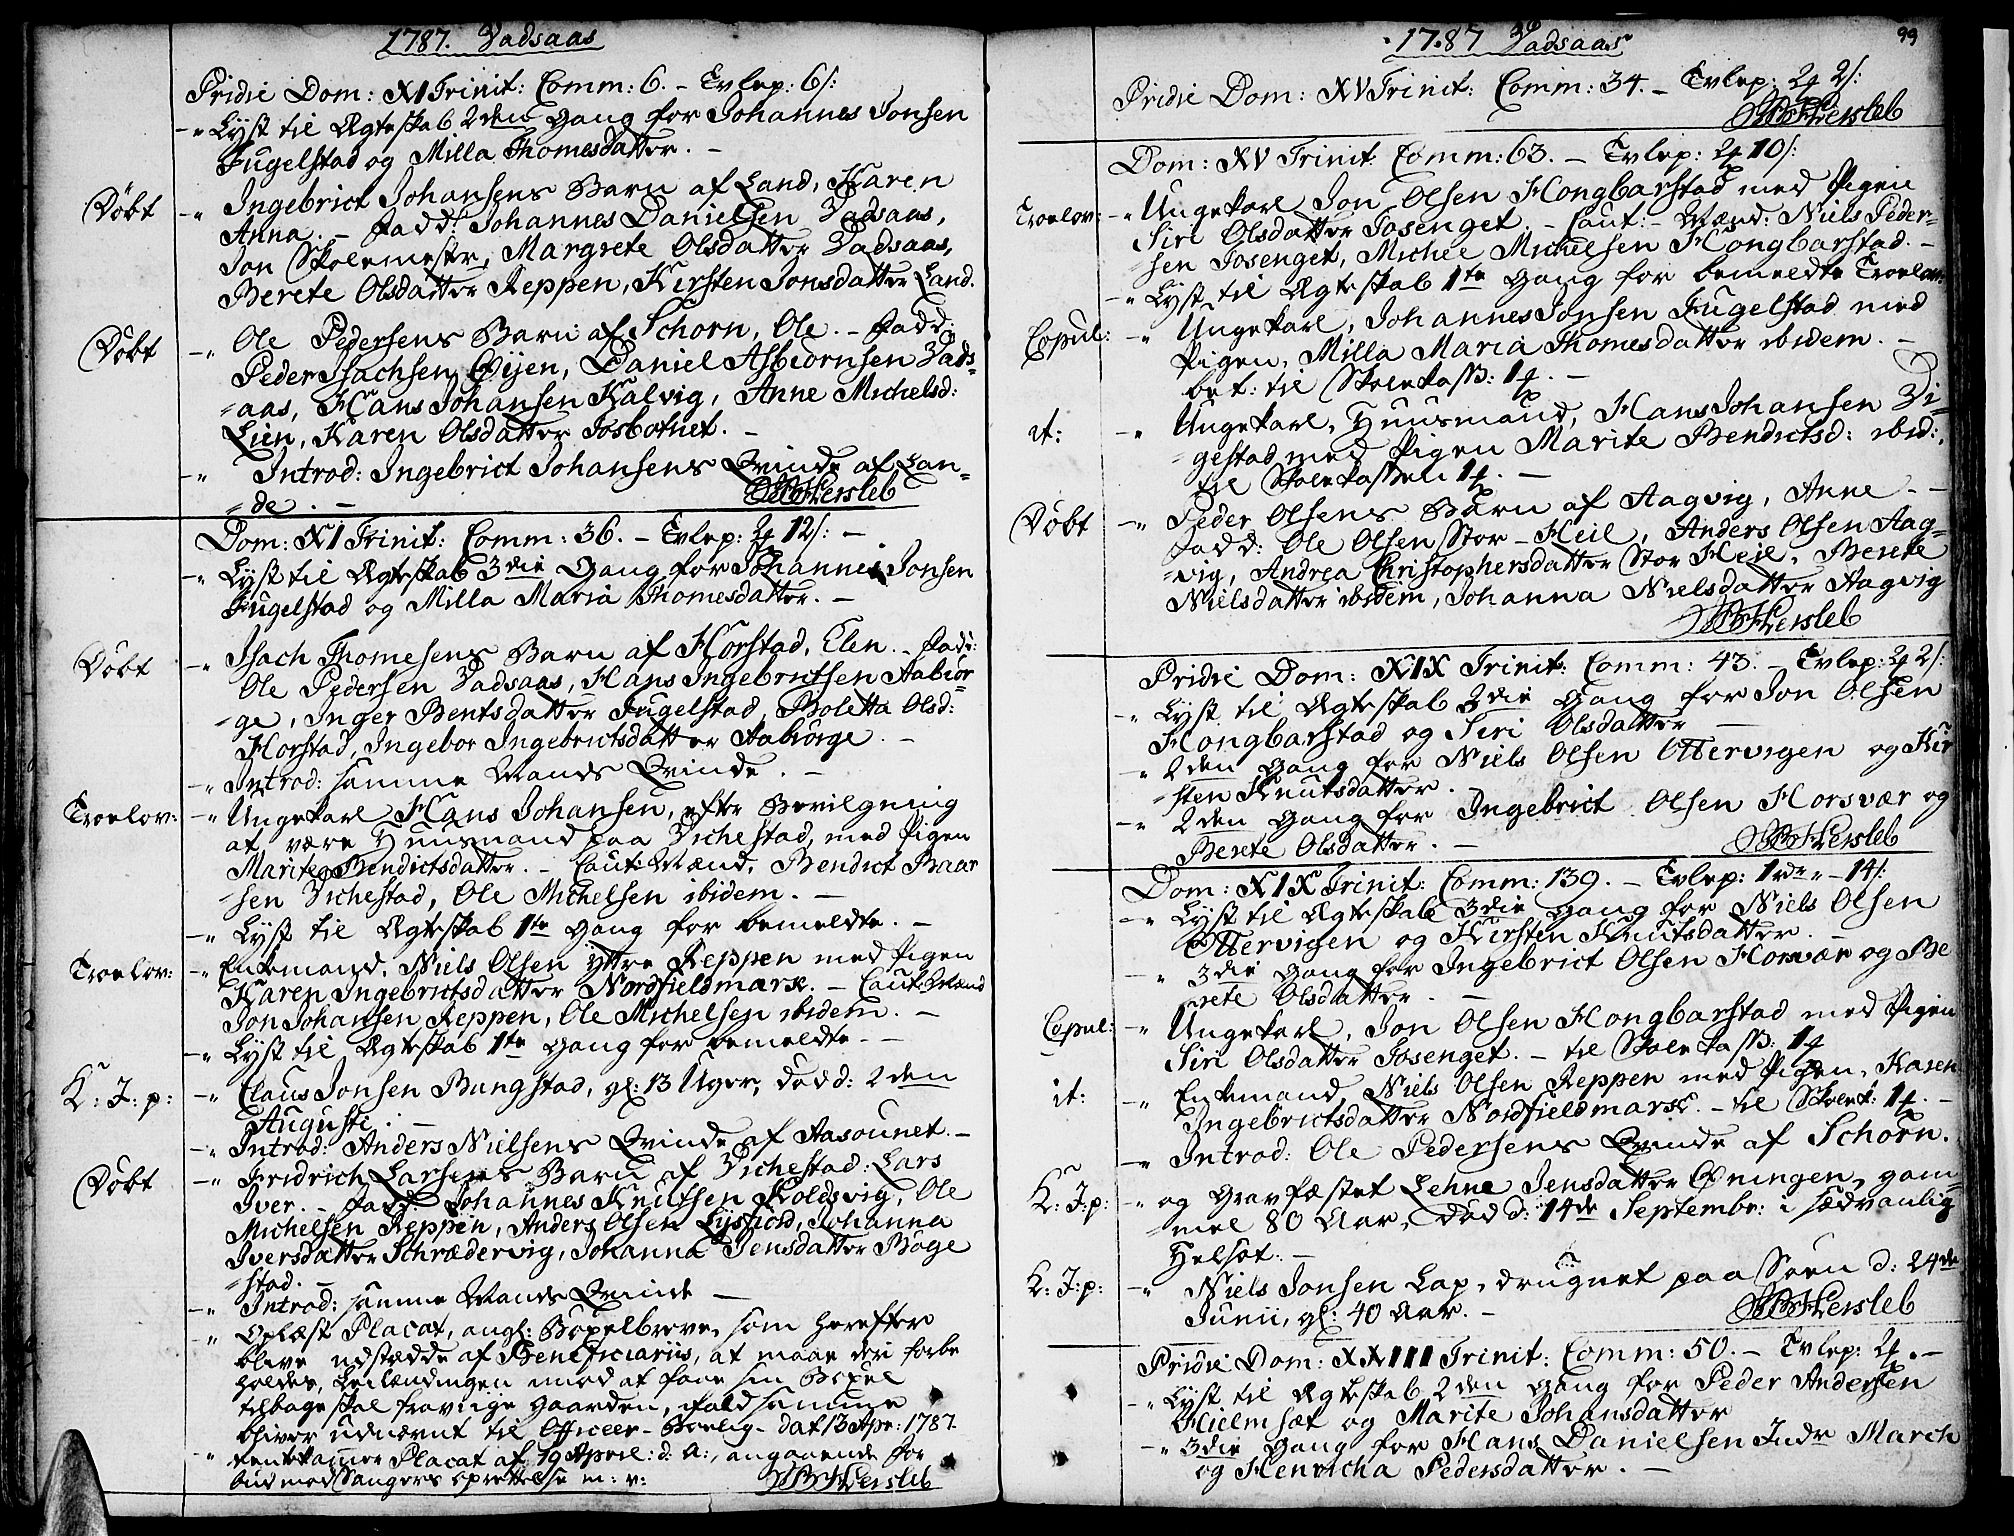 1787. Vadsaas
Pridie Dom: XI Trinit: Comm: 6. - Tvlep: 6/:
-" Lyst til Ægteskab 2den Gang for Johannes Jonsen
Fugelstad og Milla Thomesdatter. -
Døbt -" Ingebrict Johansens Barn af Land, Karen
Anna. - Fadd: Johannes Danielsen Vadsaas,
Jon Skolemestr, Margrete Olsdatter Vadsaas,
Berete Olsdatter Reppen, Kirsten Jonsdatter Land.
Døbt -" Ole Pedersens Barn af Schorn, Ole. - Fadd:
Peder Isachsen Øijen, Daniel Asbiørnsen Vads-
-aas, Hans Johansen Kalvig, Anne Michelsd:
Lien, Karen Olsdatter Fosbotnet. -
-" Introd: Ingebrict Johansens Qvinde af Lan-
-de. - Hersleb
Dom: XI Trinit: Comm: 36. - Tvlep: 2 12/: -
-" Lyst til Ægteskab 3die Gang for Johannes Jonsen
Fugelstad og Milla Maria Thomesdatter. -
Døbt -" Isach Thomesens Barn af Horstad, Elen. - Fadd:
Ole Pedersen Vadsaas, Hans Ingebrictsen Aabiør-
-ge, Inger Bentsdatter Fugelstad, Boletta Olsd:
Horstad, Ingebor Ingebrictsdatter Aabiørge. -
-" Introd: samme Mands Qvinde. -
Troelov: -" Ungekarl Hans Johansen, efter Bevilgning
at være Huusmand paa Vichestad, med Pigen
Marite Bendictsdatter. - Caut: Mænd, Bendict Baar
-sen Vichestad, Ole Michelsen ibidem. -
-" Lyst til Ægteskab 1te Gang for bemeldte. -
Troelov: -" Enkemand, Niels Olsen Yttre Reppen med Pigen
Karen Ingebrictsdatter Nordfieldmark. - Caut: Mænd
Jon Johansen Reppen, Ole Michelsen ibidem. -
-" Lyst til Ægteskab 1te Gang for bemeldte. -
K: J: p: -" Claus Jonsen Bangstad, gl: 13 Uger, død d: 2den
Augusti. -
-" Introd: Anders Nielsens Qvinde af Aasounet. -
Døbt -" Fridrich Larsens Barn af Vichestad: Lars
Iver. - Fadd: Johannes Knutsen Koldsvig, Ole
Michelsen Reppen, Anders Olsen Lysfiord, Johanna
Iversdatter Schrædervig, Johanna Jensdatter Bøge
-stad. -
-" Introd: samme Mands Qvinde -
-" Oplæst Placat, angl: Bøxelbreve, som herefter
blive udstædde af Beneficiariis, at maae deri forbe
holdes, Leilændingen imod at faae sin Bøxel
tilbage skal fravige Gaarden, ifald samme
bliver udnævnt til Officeer-Boelig - dat 13 Apr: 1787.
" Rentekamer Placat af 19 April: d: A:, angaaende for
bud mod Sangers oprettelse m: v: Hersleb
1787 Vadsaas 99
Pridie Dom: XV Trinit: Comm: 34. - Tvlep: 2 2/:
Hersleb
Dom: XV Trinit: Comm: 63. - Tvlep: 2 10/:
Troelov: -" Ungekarl Jon Olsen Hongbarstad med Pigen
Siri Olsdatter Fosenget. - Caut: Mænd: Niels Peder-
-sen Fosenget, Michel Michelsen Hongbarstad. -
-" Lyst til Ægteskab 1te Gang for bemeldte Troelov:
Copul: -" Ungekarl, Johannes Jonsen Fugelstad med
Pigen, Milla Maria Thomesdatter ibidem. -
bet: til Skolekass: 1 . -
it: -" Ungekarl, Huusmand, Hans Johansen Vi-
-gestad med Pigen Marite Bendictsd: ibid:,
til Skolekassen 1 . -
Døbt -" Peder Olsens Barn af Aagvig, Anne. -
Fadd: Ole Olsen Stor-Heil, Anders Olsen Aag-
-vig, Andrea Christophersdatter Stor Heil, Berete
Nielsdatter ibidem, Johanna Nielsdatter Aagvig
Hersleb
Pridie Dom: XIX Trinit: Comm: 43. - Tvlep: 2 2/:
-" Lyst til Ægteskab 3die Gang for Jon Olsen
Hongbarstad og Siri Olsdatter -
-" 2den Gang for Niels Olsen Ottervigen og Kir
-sten Knutsdatter.
-" 2den Gang for Ingebrict Olsen Horsvær og
Berete Olsdatter. - Hersleb
Dom: XIX Trinit: Comm: 139. - Tvlep: 1 rdr " - 14/:
-" Lyst til Ægteskab 3die Gang for Niels Olsen
Ottervigen og Kirsten Knutsdatter. -
" 3die Gang for Ingebrict Olsen Horsvær og Be
-rete Olsdatter. -
Copul: -" Ungekarl, Jon Olsen Hongbarstad med Pigen
Siri Olsdatter Fosenget. - til Skolekass: 1
it: -" Enkemand, Niels Olsen Reppen med Pigen, Karen
Ingebrictsdatter Nordfieldmark. - til Skolek: 1 . -
-" Introd: Ole Pedersens Qvinde af Schorn.
K: J: p: -" og Gravfæstet Lehne Jensdatter Øningen, gam-
-mel 80 Aar, død d: 14de Septembr: i sædvanlig
Helsot. -
K: J: p: -" Niels Jonsen Lap, drugnet paa Søen d: 24de
Junii, gl: 40 Aar. - Hersleb
Pridie Dom: XXIII Trinit: Comm: 50. - Tvlep: 2 . -
-" Lyst til Ægteskab 2den Gang for Peder Andersen
Hielmsæt og Marite Johansdatter
-" 3die Gang for Hans Danielsen Indr March
og Henricha Pedersdatter. -